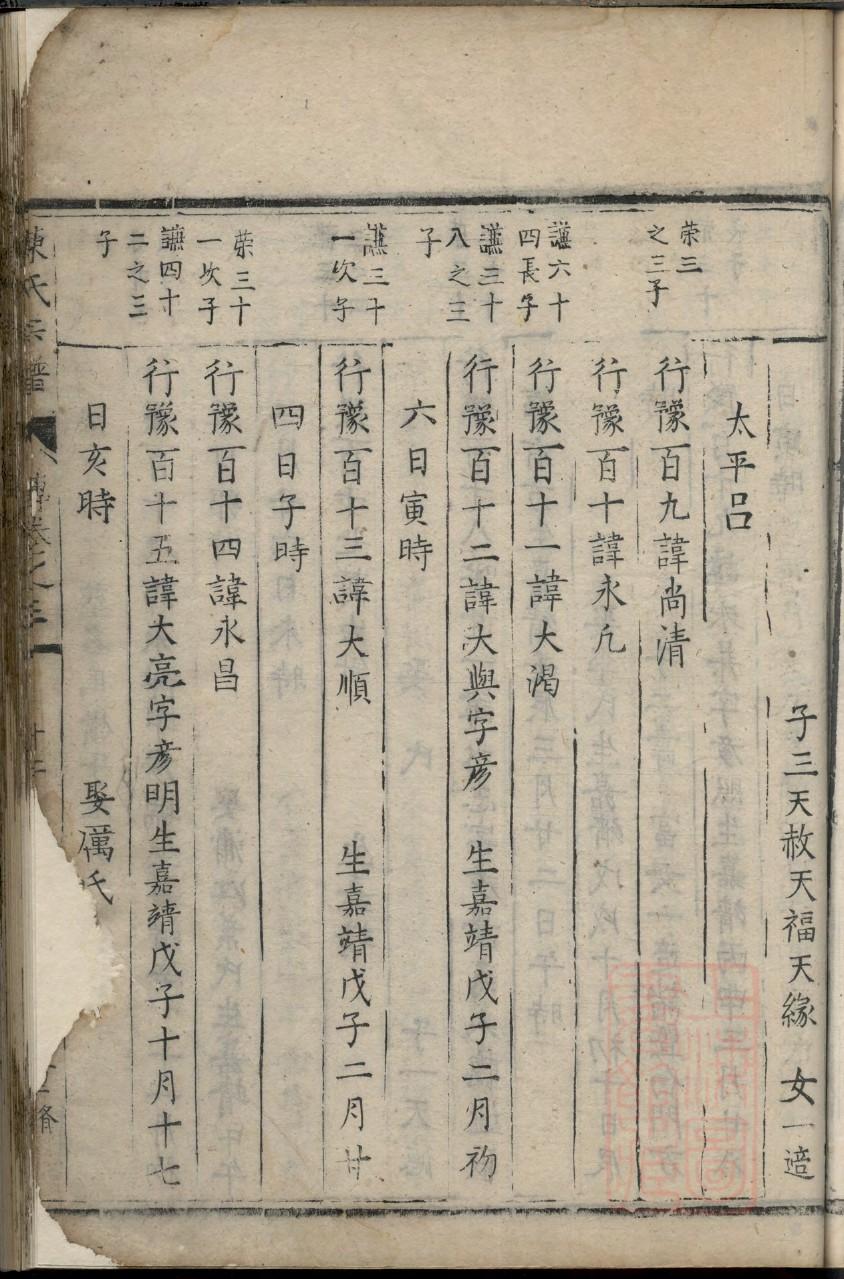 子三天赦天福天緣　女一適
太平呂
荣三
之三子
行豫一百九諱尚清
行豫一百十諱永凢
謙六十
四長子
行豫一百十一諱大渴
謙三十
八之三
子
行豫一百十二諱大與字彥　生嘉靖戊子二月初
六日寅時
謙三十
一次子
行豫一百十三諱大順　生嘉靖戊子二月廿
四日子時
荣三十
一次子
行豫一百十四諱永昌
謙四十
二之三
子
行豫一百十五諱大亮字彥明生嘉靖戊子十月十七
日亥時　娶厲氏
陳氏宗譜　傳卷之